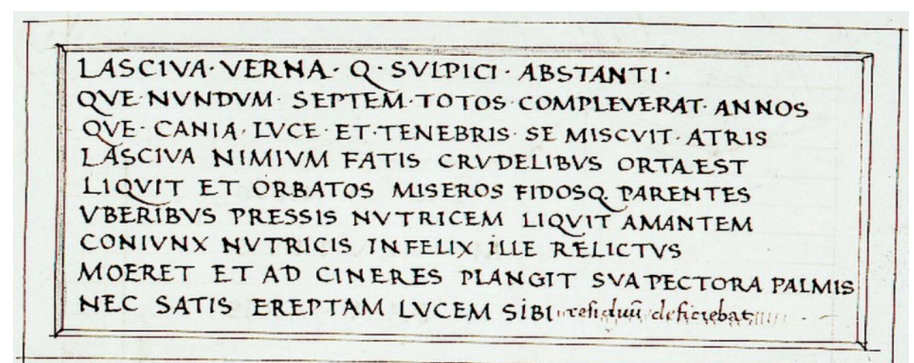 LASCIVA · VERNA · Q · SVLPICI · ABSTANTI ·
QVE · NVNDVM · SEPTEM · TOTOS · COMPLEVERAT · ANNOS
QVE · CANIA · LVCE · ET · TENEBRIS · SE MISCVIT · ATRIS
LASCIVA NIMIVM FATIS CRVDELIBVS ORTA EST
LIQVIT ET ORBATOS MISEROS FIDOSQ PARENTES
VBERIBVS PRESSIS NVTRICEM LIQVIT AMANTEM
CONIVNX NVTRICIS INFELIX ILLE RELICTVS
MOERET ET AD CINERES PLANGIT SVA PECTORA PALMIS
NEC SATIS EREPTAM LVCEM SIBI residuū deficiebat